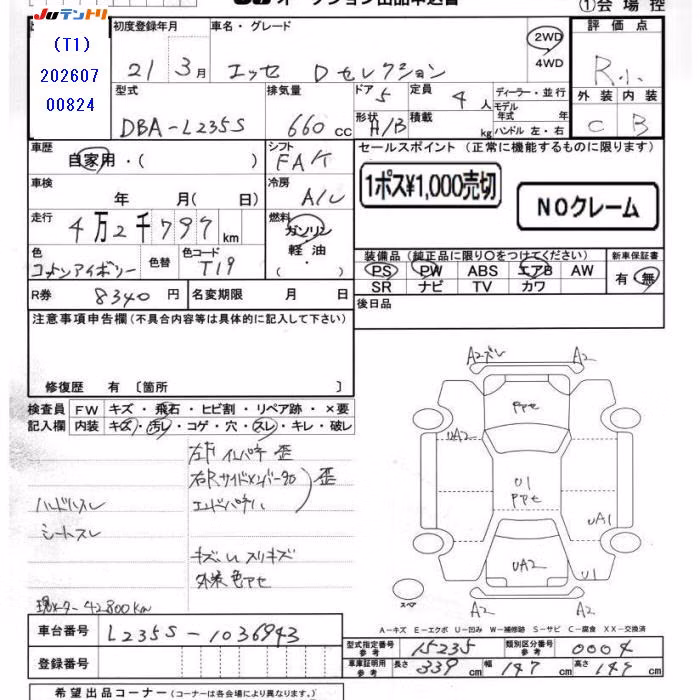 JUテントリ オークション出品申込書 ①会場控
(T1)
202607
00824
初度登録年月 車名・グレード
21年 3月 エッセ Dセレクション
2WD
4WD
評価点
R小
外装 内装
C B
型式 排気量 ドア 5 定員 4人
DBA-L235S 660cc
形状 H/B 積載 kg
ディーラー・並行
モデル年式 年式
ハンドル 左・右
車歴 シフト
自家用・( ) FA/T
車検 冷房
年 月( 日) A/C
走行 燃料
4万2千797km
ガソリン
軽油
( )
色 色替 色コード
コットンアイボリー T19
R券 8340円 名変期限 月 日
セールスポイント (正常に機能するものに限ります)
1ポス¥1,000売切
NOクレーム
装備品 (純正品に限り○をつけてください)
PS PW ABS エアB AW
SR ナビ TV カワ
新車保証書
有・無
後日品
注意事項申告欄(不具合内容等は具体的に記入して下さい)
修復歴 有 〔箇所 〕
検査員 FW キズ・飛石・ヒビ割・リペア跡・×要
記入欄 内装 キズ・汚レ・コゲ・穴・スレ・キレ・破レ
左Fインパネ 歪
右RサイドメンバーTO
エンドパネル 歪
ハンドルスレ
シートスレ
キズUスリキズ
外装色アセ
現メーター42800km
A2ズレ A2
PPセ
UA2
U1
PPセ
UA1
UA2
U1
A2 A2
スペア
A-キズ E-エクボ U-凹み W-補修跡 S-サビ C-腐食 XX-交換済
車台番号 L235S-1036943
登録番号
型式指定番号 参考 15235 類別区分番号 参考 0004
車庫証明用 参考 長さ 339cm 幅 147cm 高さ 147cm
希望出品コーナー (コーナーは各会場により異なります。)